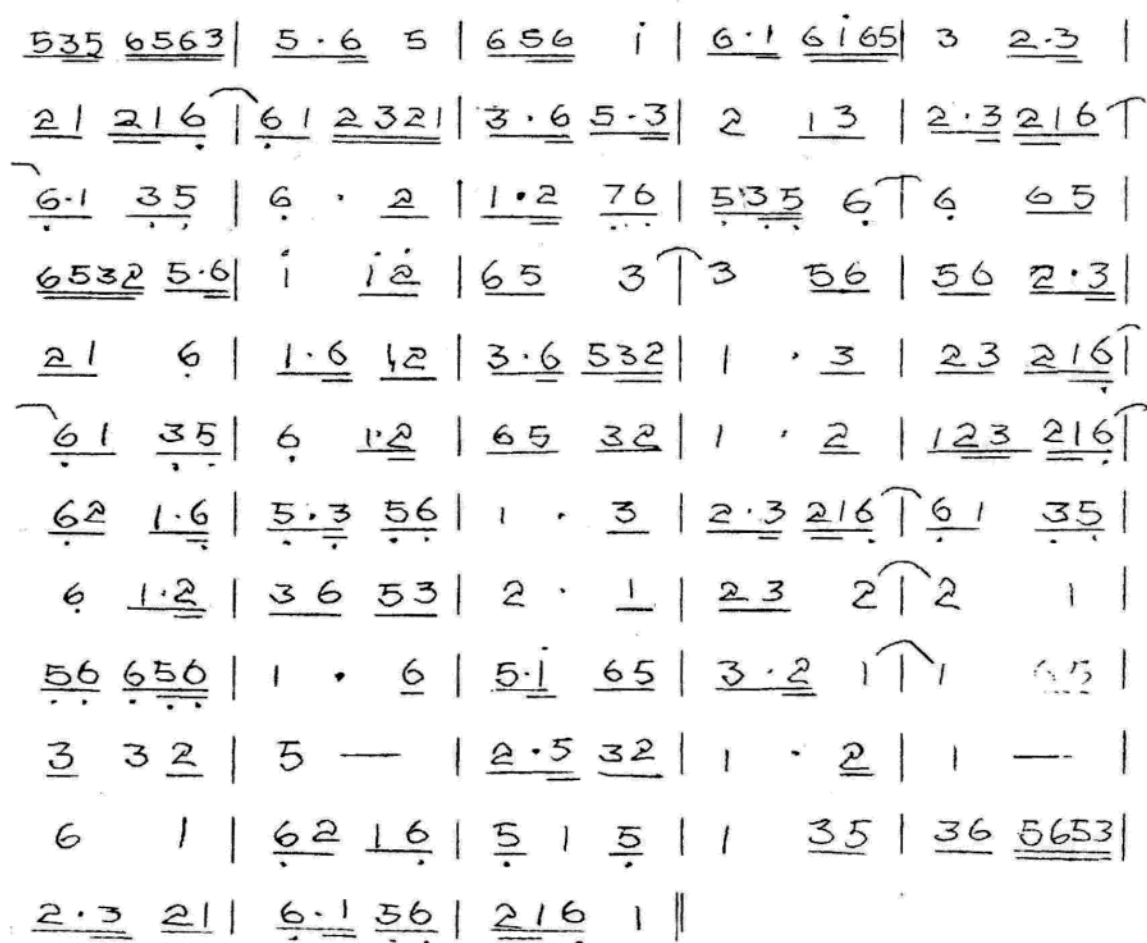 535 6563 | 5·6 5 | 656 i | 6·1 6i65 | 3 2·3 |
21 216 | 61 2321 | 3·6 5·3 | 2 13 | 2·3 216 |
6·1 35 | 6 · 2 | 1·2 76 | 535 6 | 6 65 |
6532 5·6 | i i2 | 65 3 | 3 56 | 56 2·3 |
21 6 | 1·6 12 | 3·6 532 | 1 · 3 | 23 216 |
61 35 | 6 1·2 | 65 32 | 1 · 2 | 123 216 |
62 1·6 | 5·3 56 | 1 · 3 | 2·3 216 | 61 35 |
6 1·2 | 36 53 | 2 · 1 | 23 2 | 2 1 |
56 656 | 1 · 6 | 5·i 65 | 3·2 1 | 1 65 |
3 3 2 | 5 — | 2·5 32 | 1 · 2 | 1 — |
6 1 | 62 16 | 5 1 5 | 1 35 | 36 5653 |
2·3 21 | 6·1 56 | 216 1 ‖